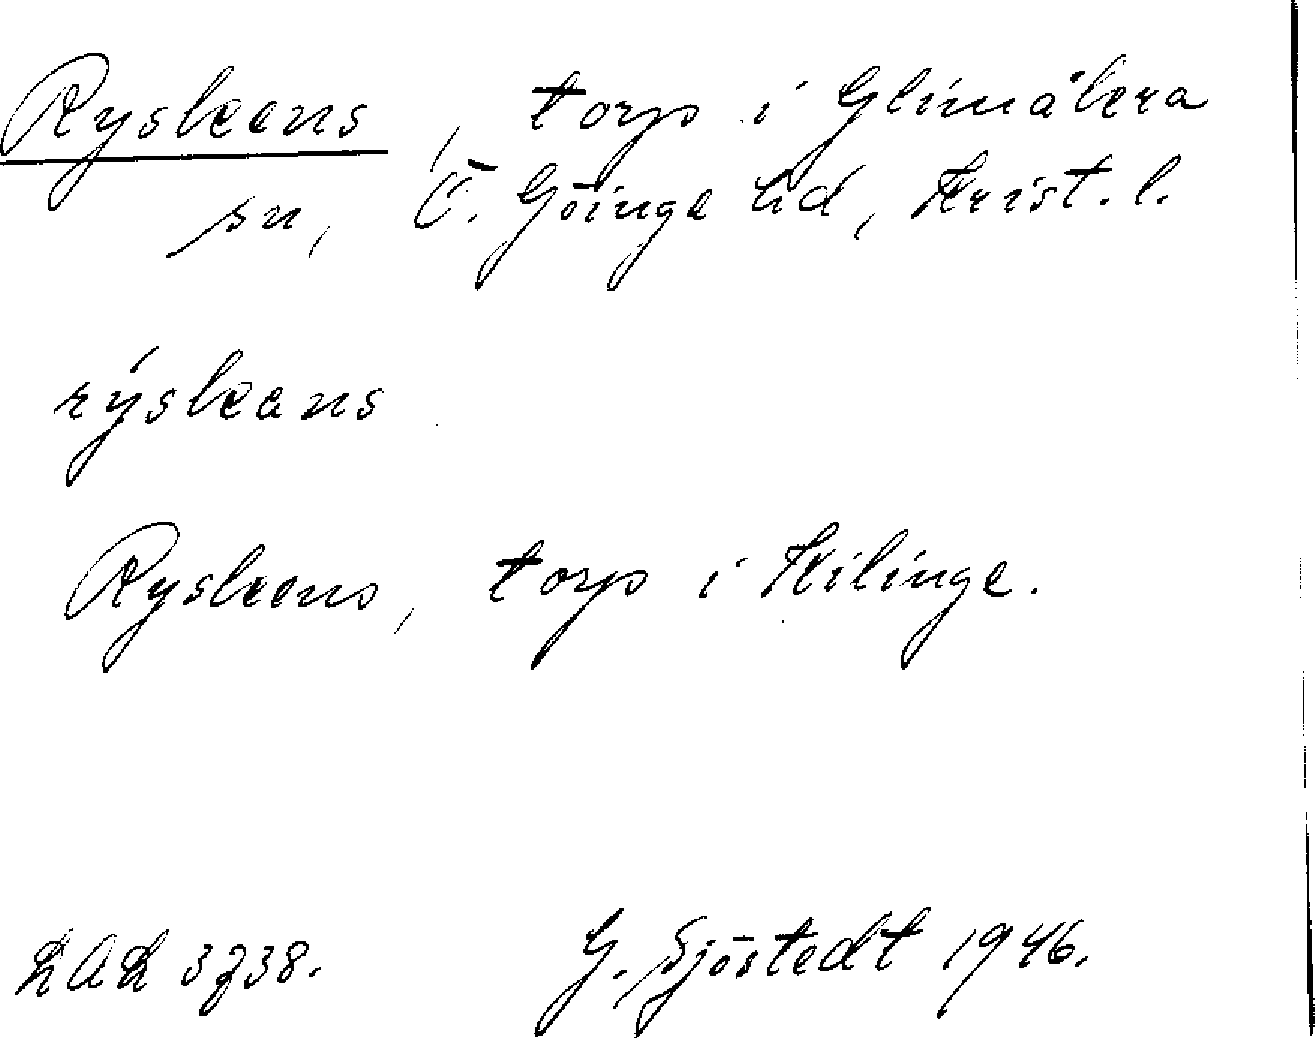 Ryskens, torp i Glimåkra
sn, Ö. Göinge hd, Krist. l.
rýskans
Ryskens, torp i Kilinge.
LAL 3738. G. Sjöstedt 1946.